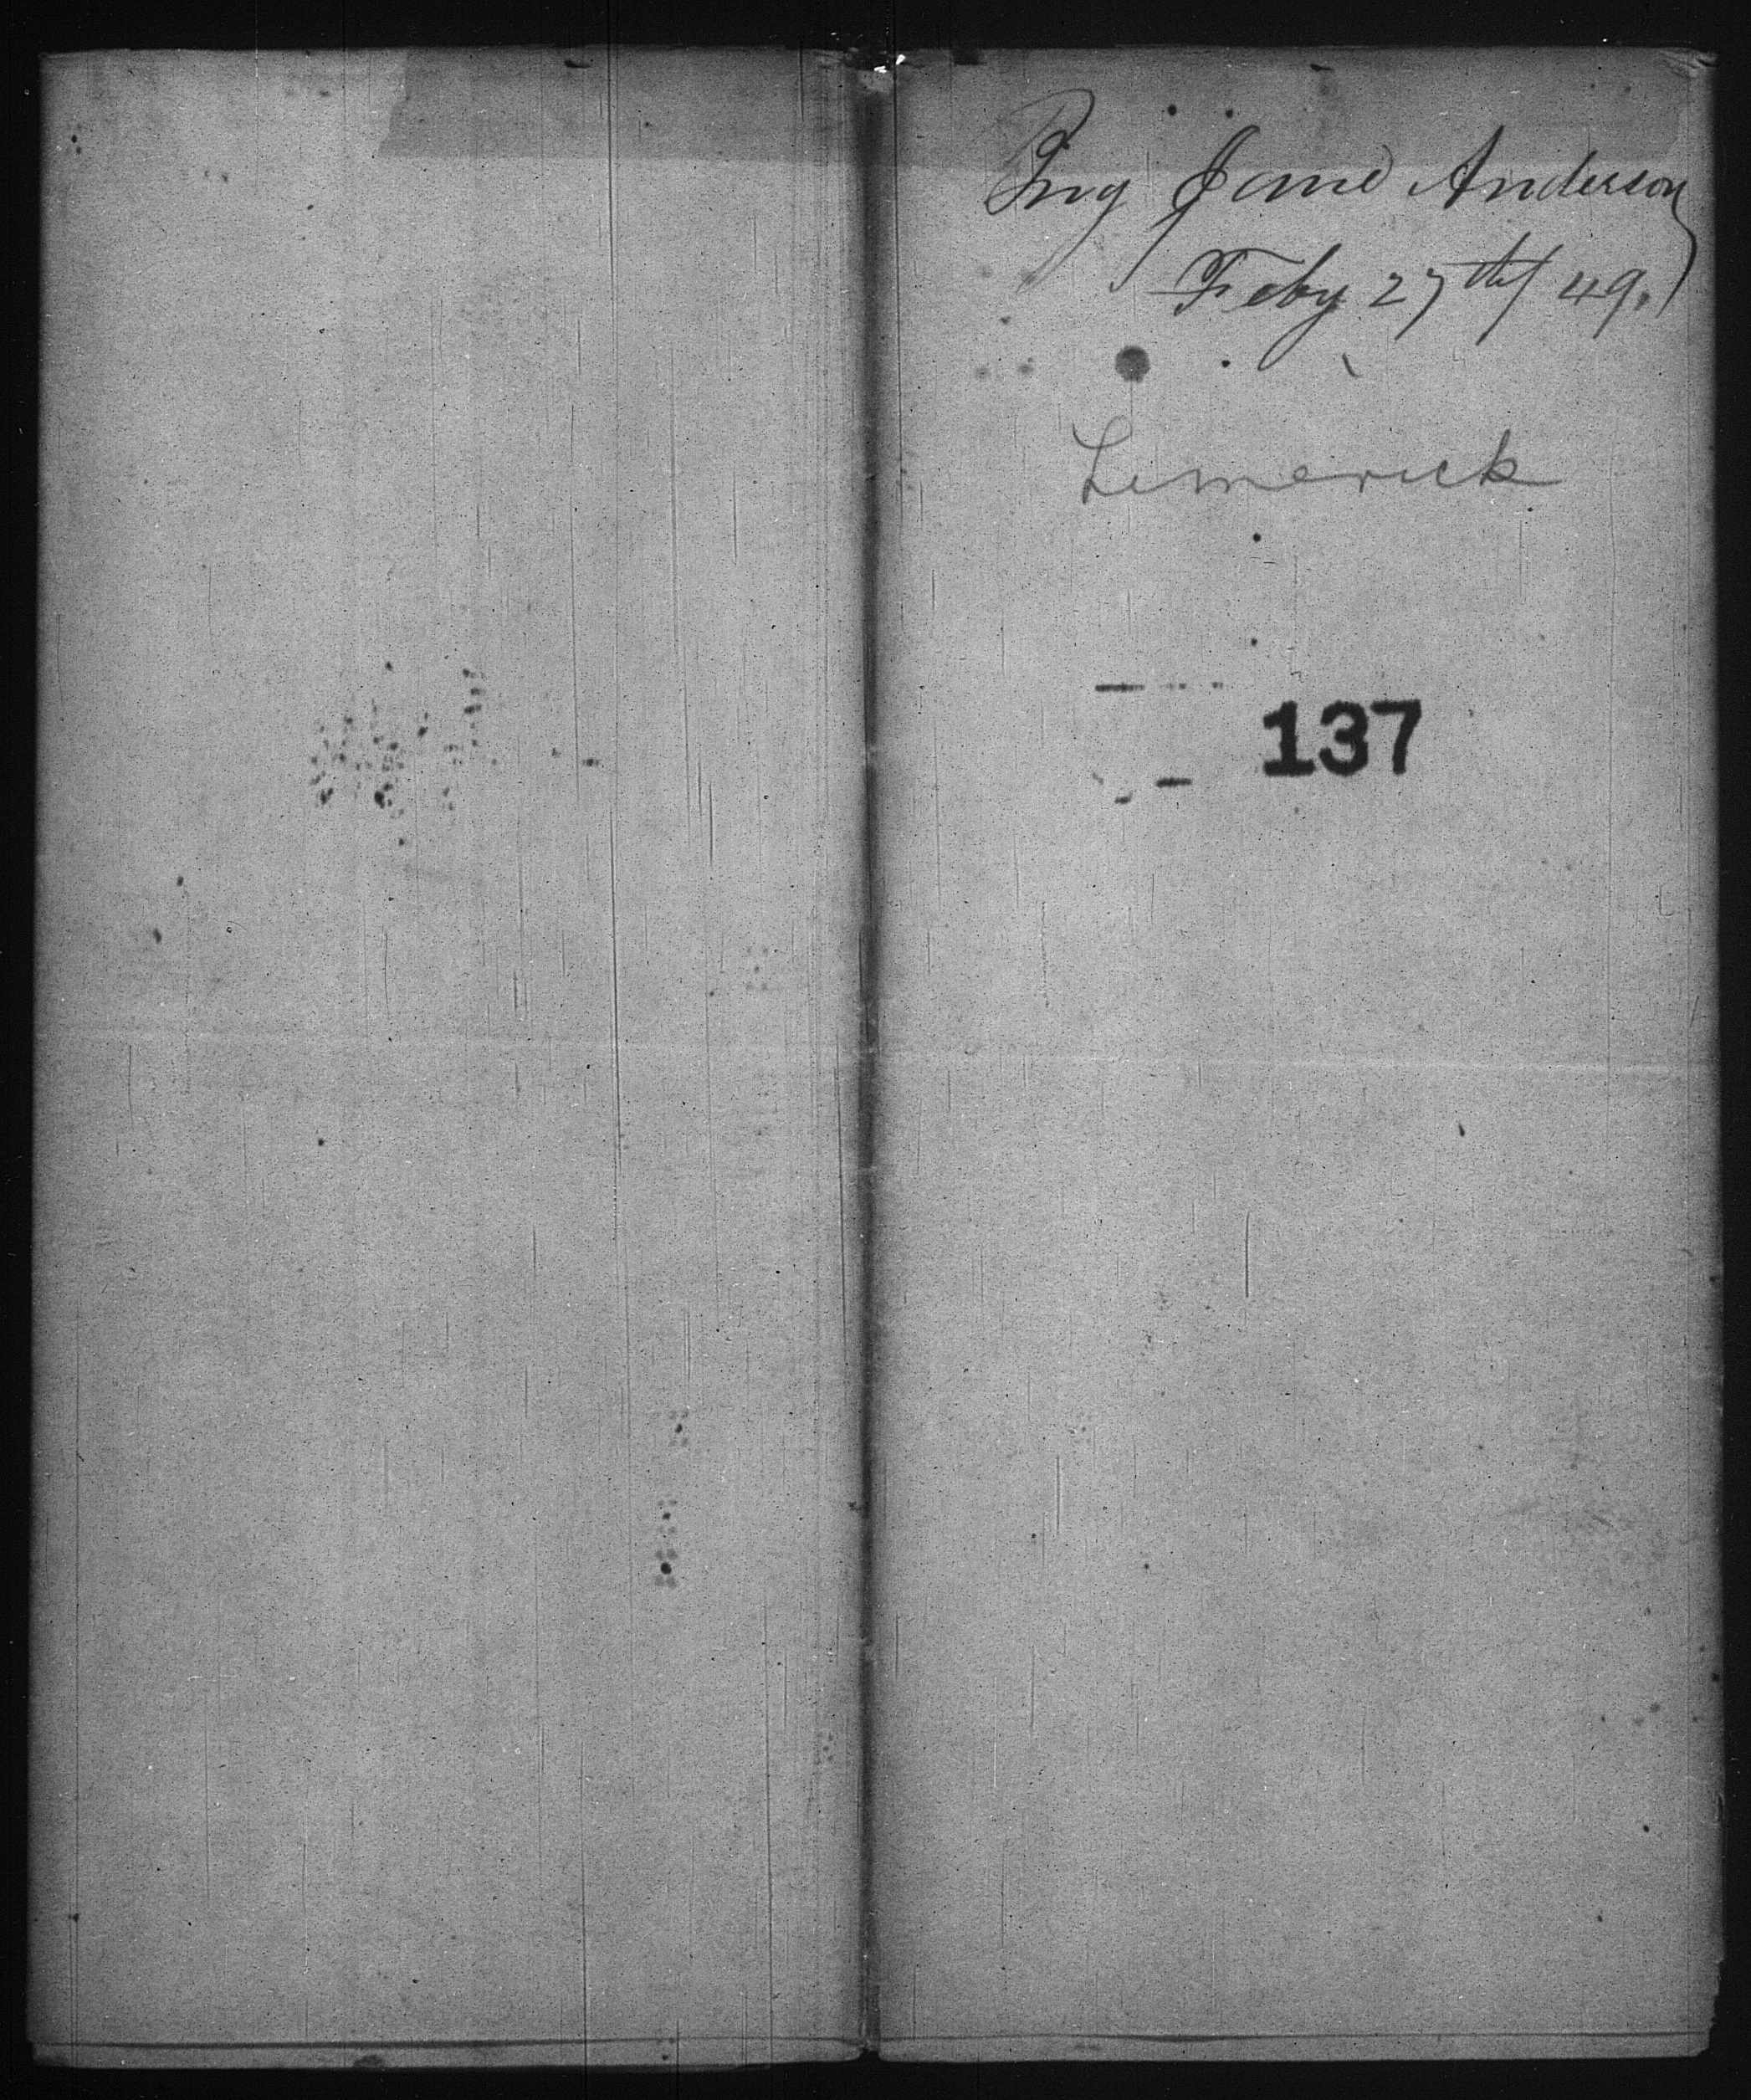 Brig Jane Anderson
Feby 27th/49.
Limerick
137